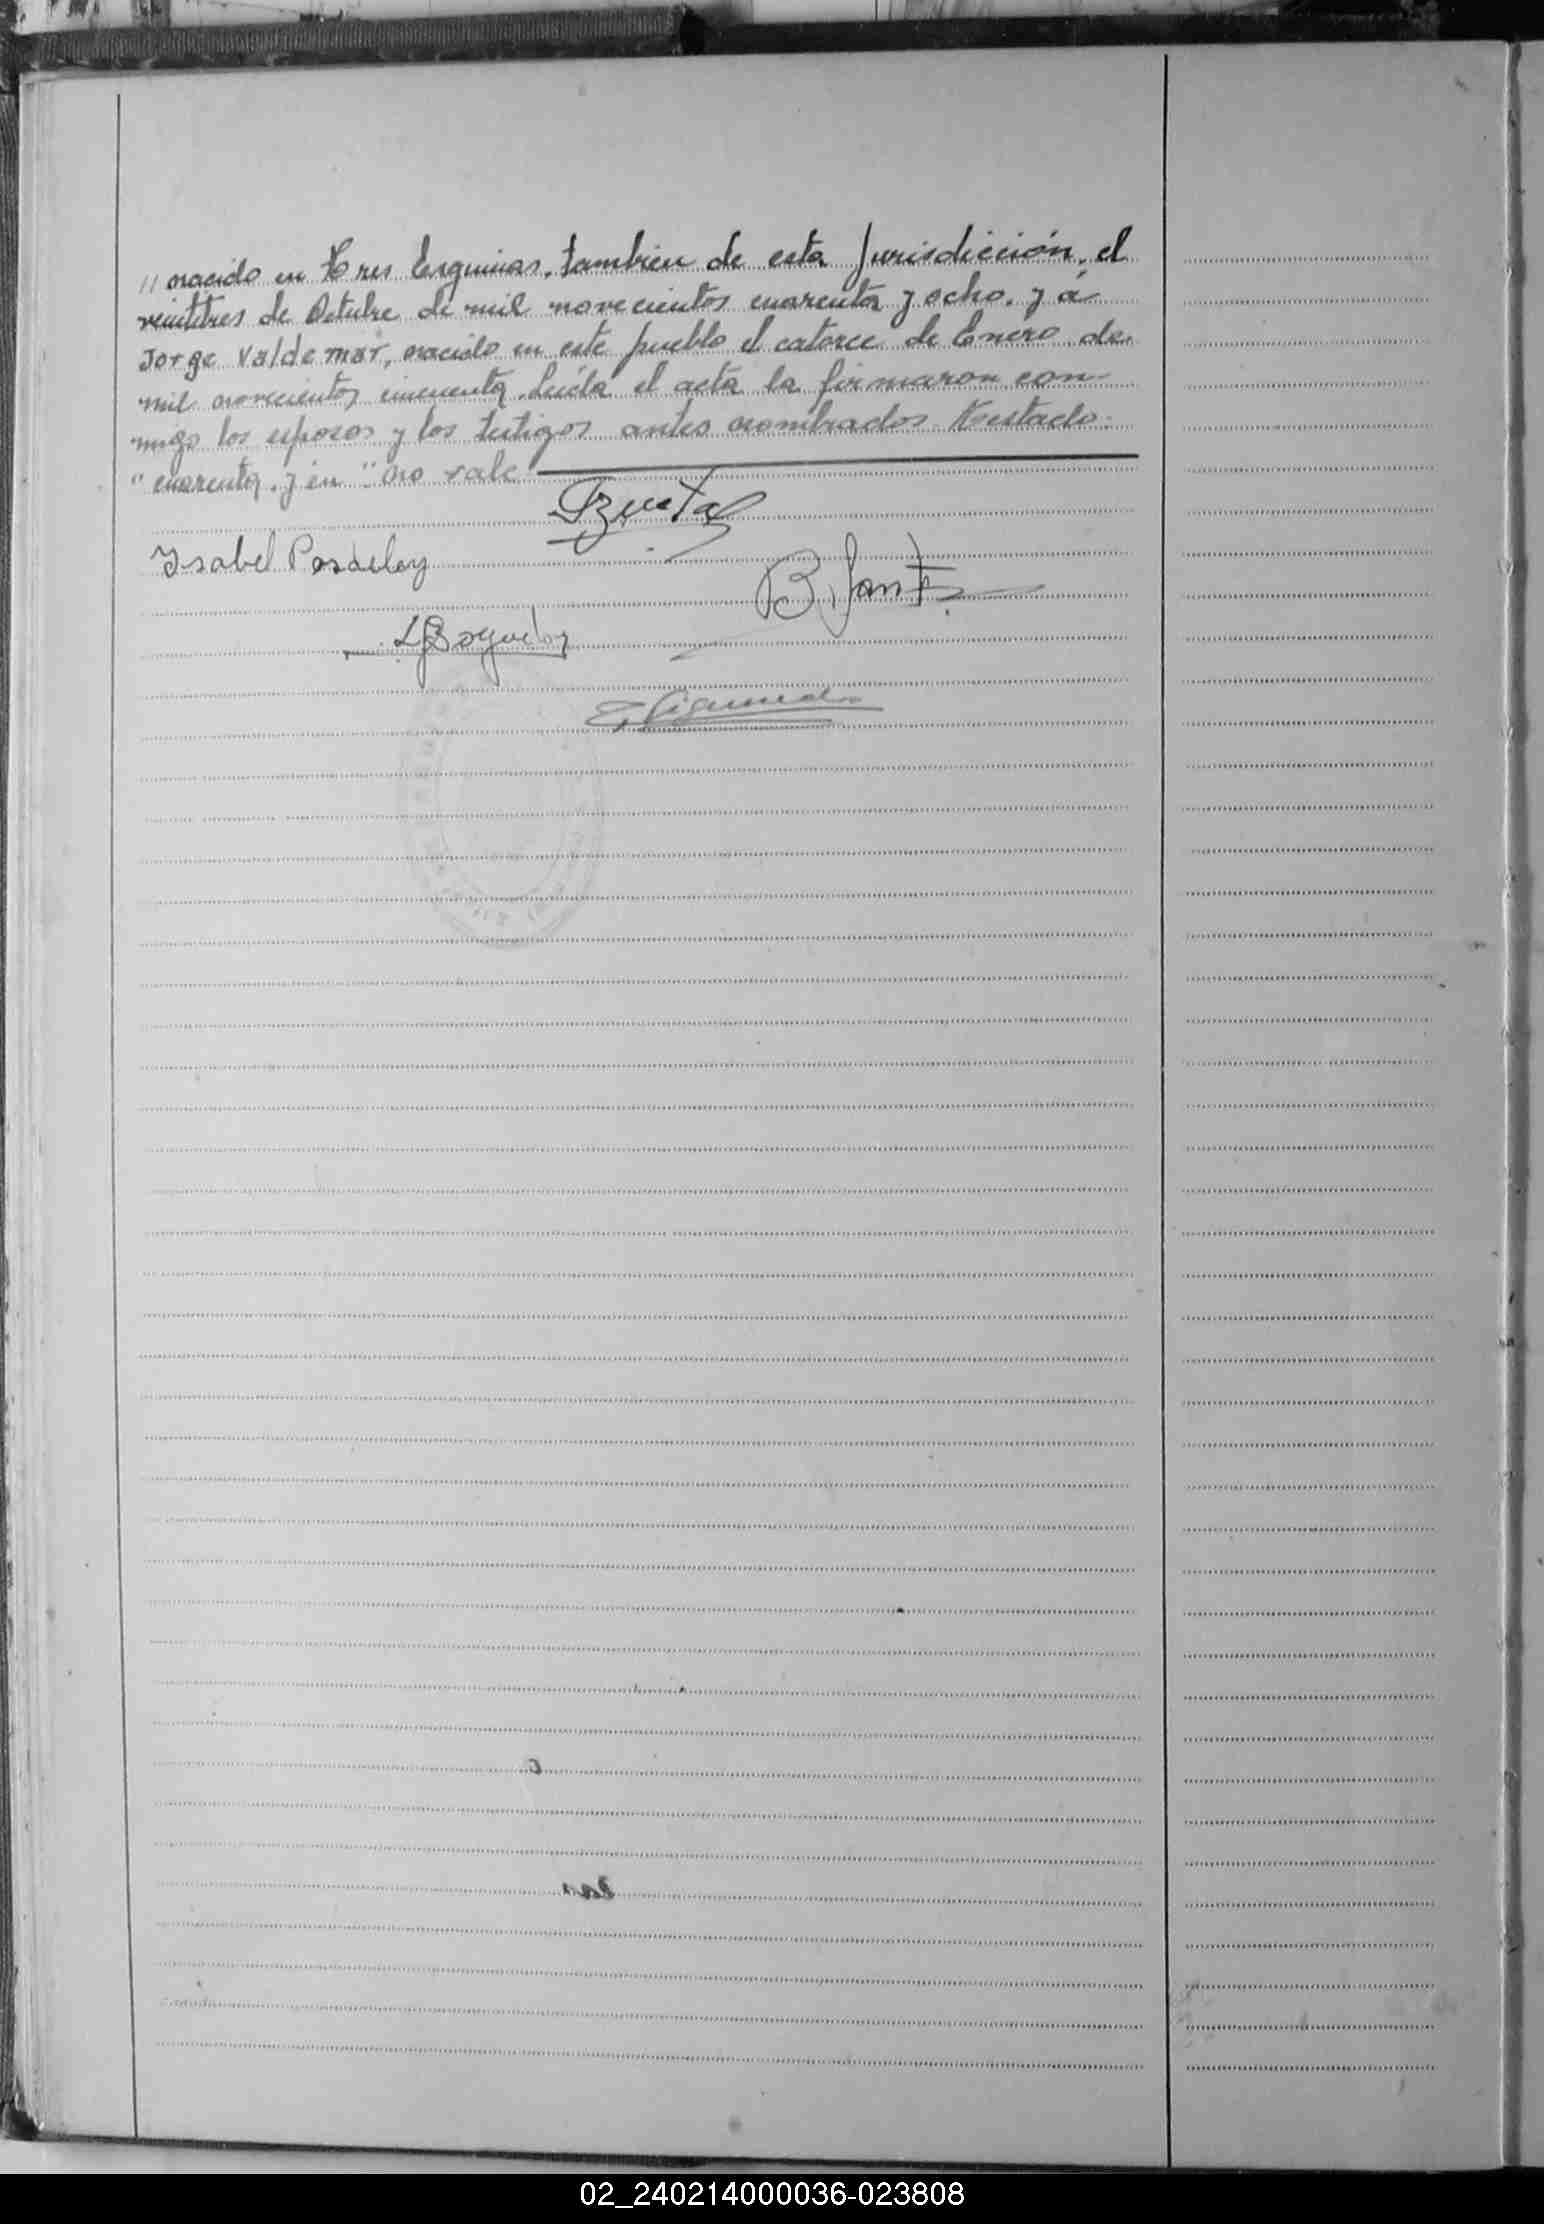 " nacido en Tres Esquinas, también de esta Jurisdicción, el
veintitres de Octubre de mil novecientos cuarenta y ocho, y á
Jorge Valdemar, nacido en este pueblo el catorce de Enero de
mil novecientos cincuenta. Leída el acta la firmaron con-
migo los esposos y los testigos antes nombrados. Testado:
"cuarenta, y en": no vale
Isabel
02_240214000036-023808